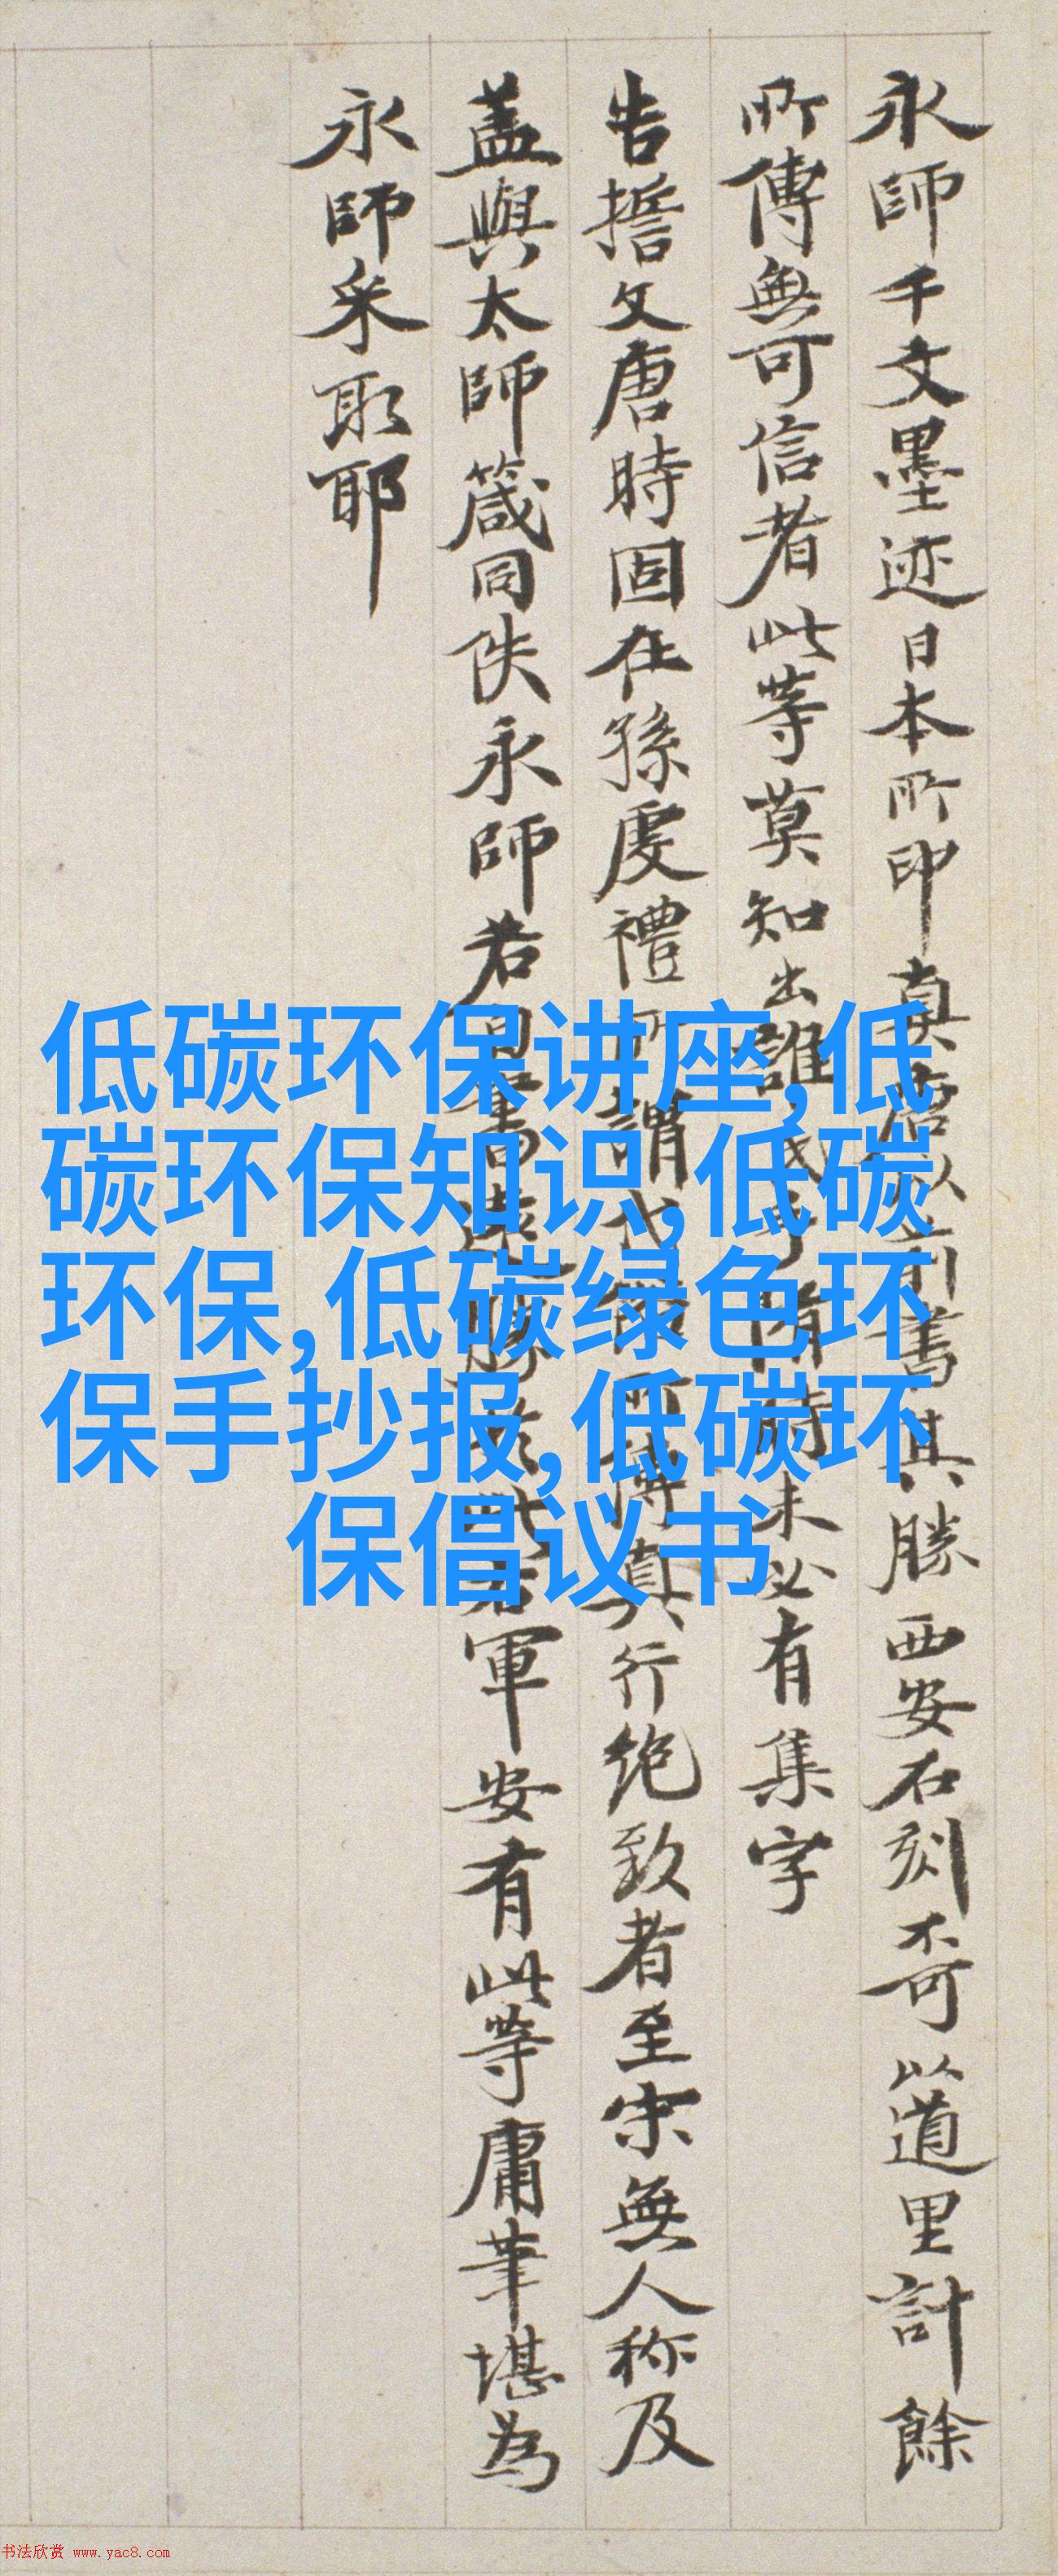 永師千文墨迹日本所印真唐以前書其勝西安石刻不可以道里計餘
所傳無可信者此等莫知出誰氏手隋時未必有集字
告誓文唐時固在孫虔禮所謂代俗所傳真行絕致者至宋無人称及
蓋與太師箴同佚永師若書遠勝於此右軍安有此等庸筆堪為
永師采取耶
低碳环保讲座,低
碳环保知识,低碳
环保,低碳绿色环
保手抄报,低碳环
保倡议书
书法欣赏 www.yac8.com